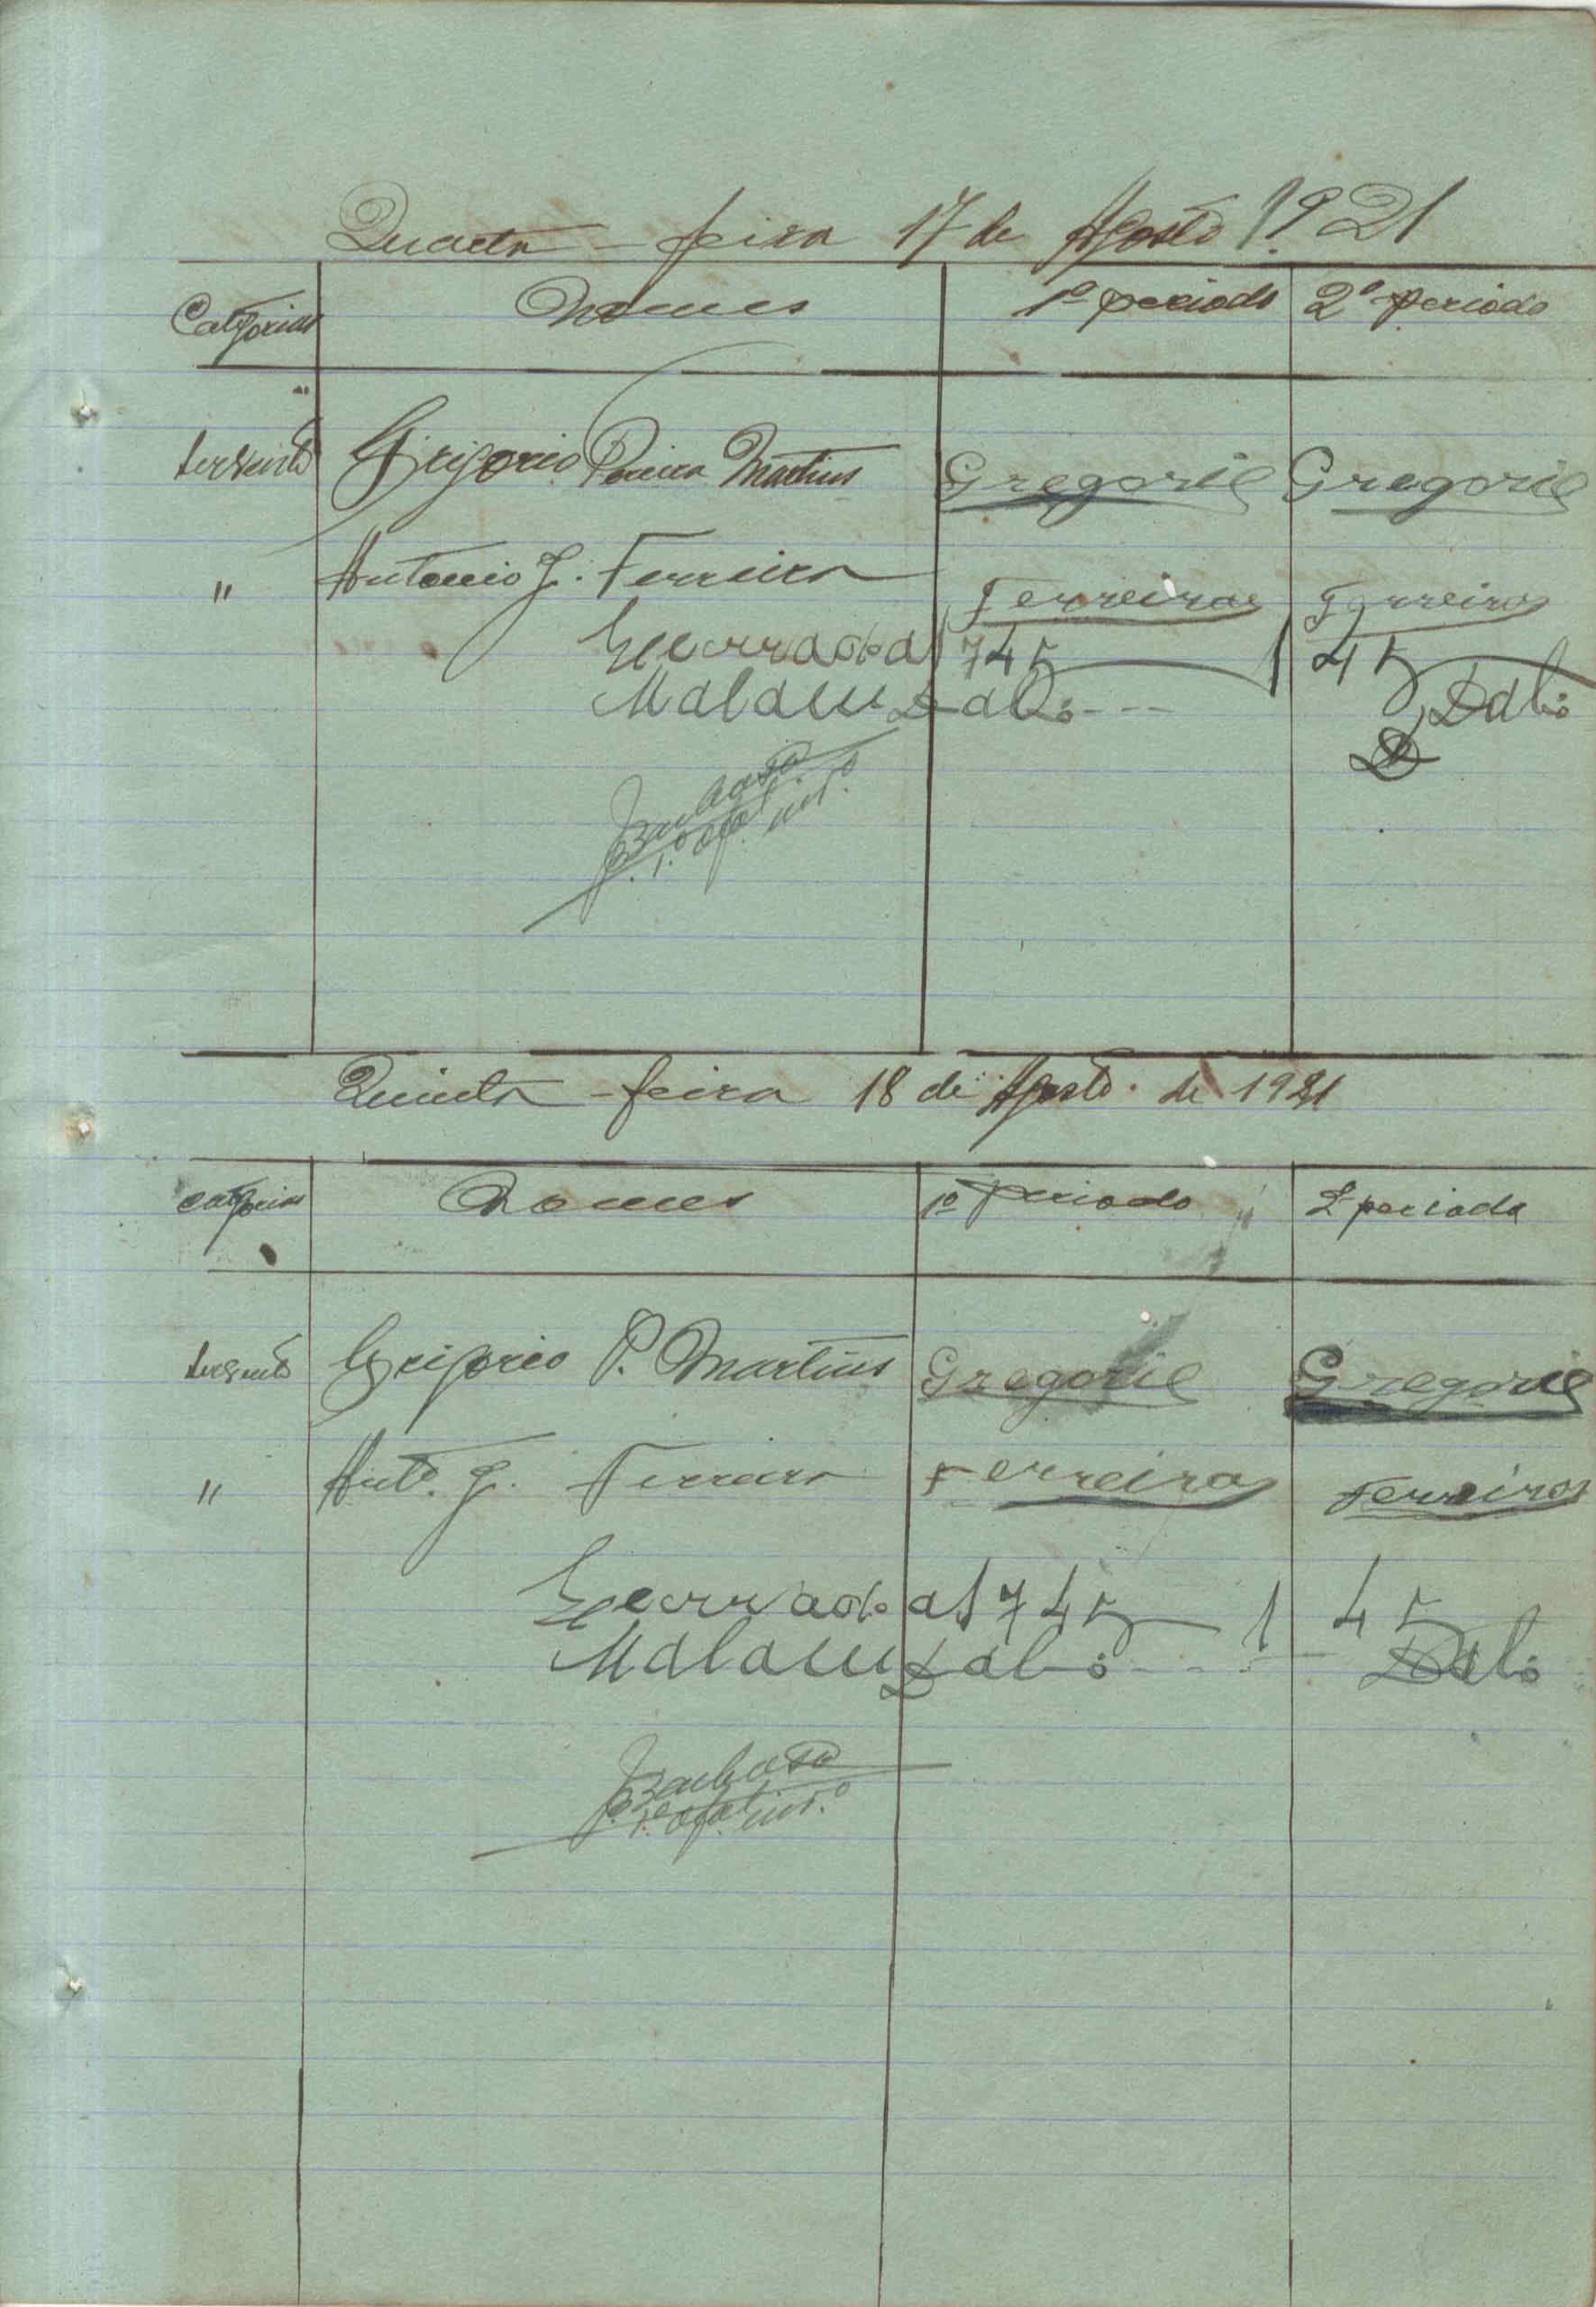 Quarta-feira 17 de Agosto 1921
Categorias Nomes 1º periodo 2º periodo
Servente Grigorio Pereira Martins Gregorie Gregorie
" Antonio J. Ferreira Ferreira Ferreira
Encerrado a 745 1 45
Malam Dabó--- Dabó
Barbosa
1.º ofal int.º
Quinta-feira 18 de Agosto de 1921
Categorias Nomes 1º periodo 2º periodo
Servente Grigorio P. Martins Gregorie Gregorie
" Antº. J. Ferreira Ferreira Ferreira
Encerrado a 745 1 45
Malam Dabó--- Dabó
Barbosa
1.º ofal int.º